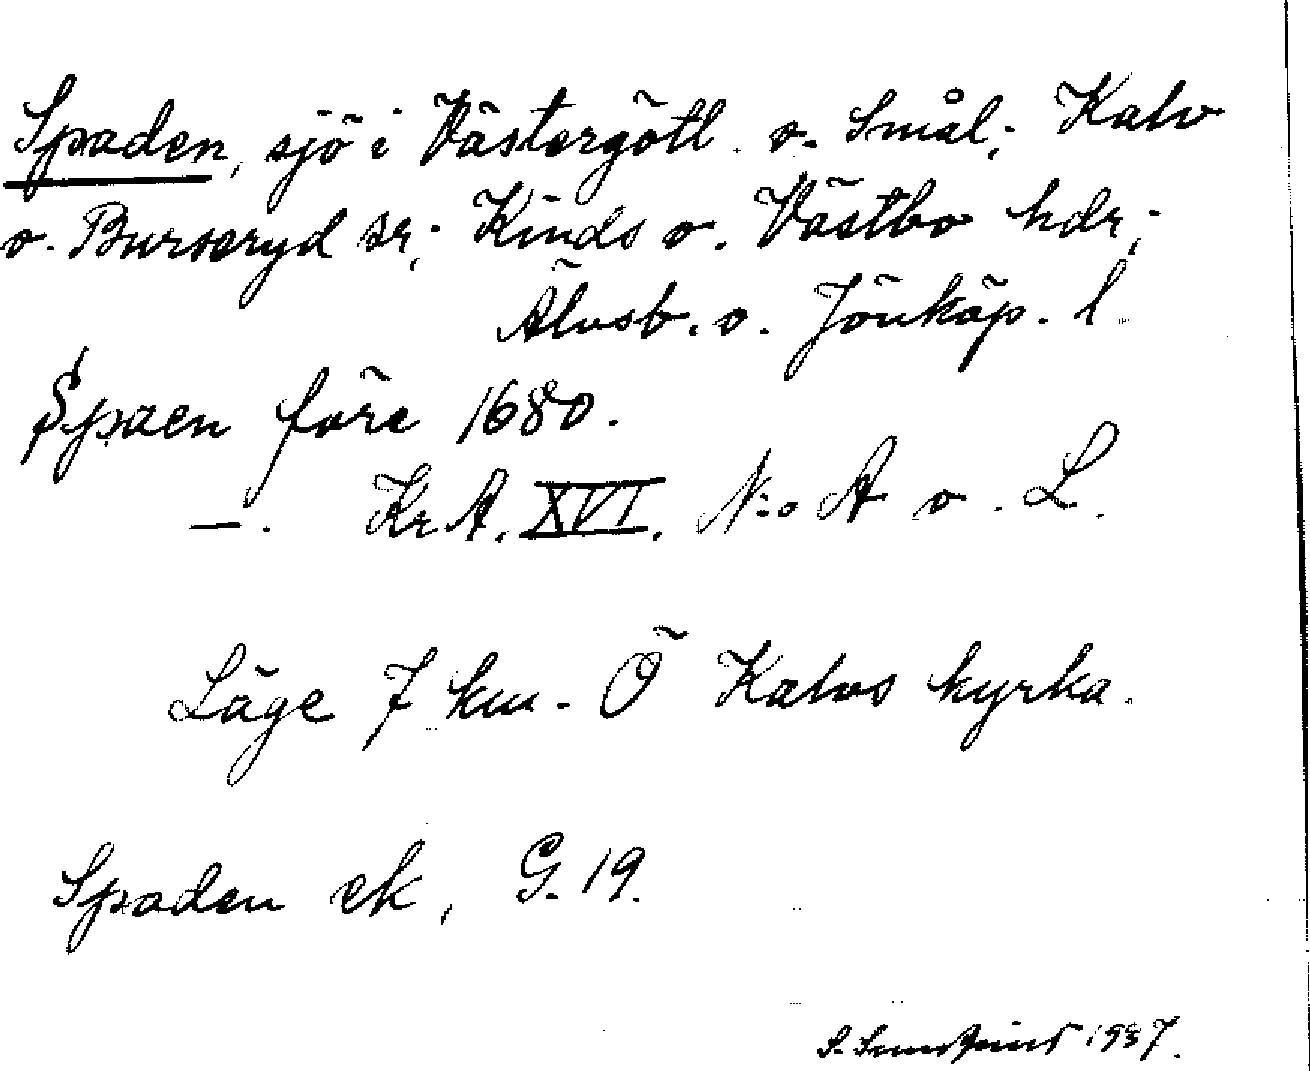 Spaden, sjö i Västergötl. o. Smål.; Kalv
o. Burseryd sr; Kinds o. Västbo hdr;
Älvsb. o. Jönköp. l.
Spaen före 1680.
—. KrA. XVI. N:o A o. L.
Läge 7 km. Ö Kalvs kyrka.
Spaden ek, G. 19.
S. 1937.